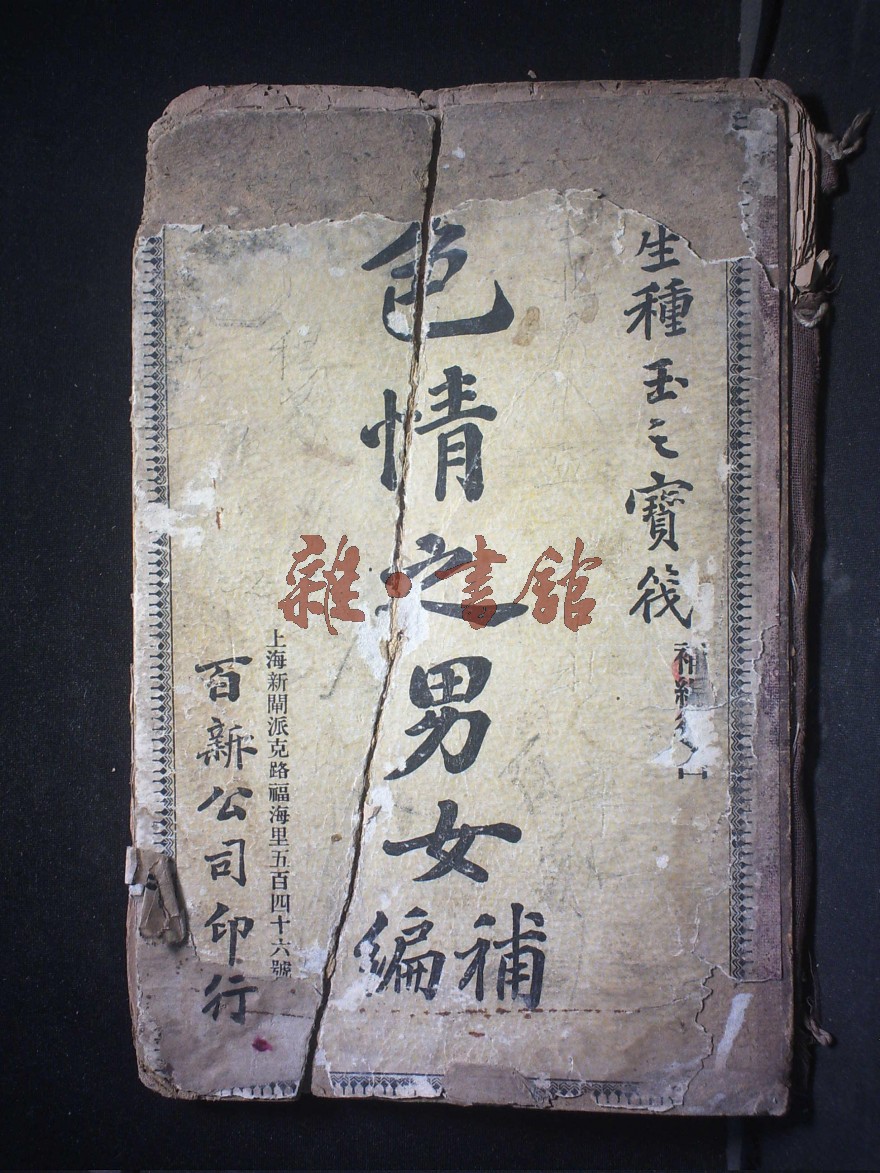 生種玉之寶筏
補編
色情之男女
補編
上海新閘派克路福海里五百四十六號
百新公司印行
雜·書館